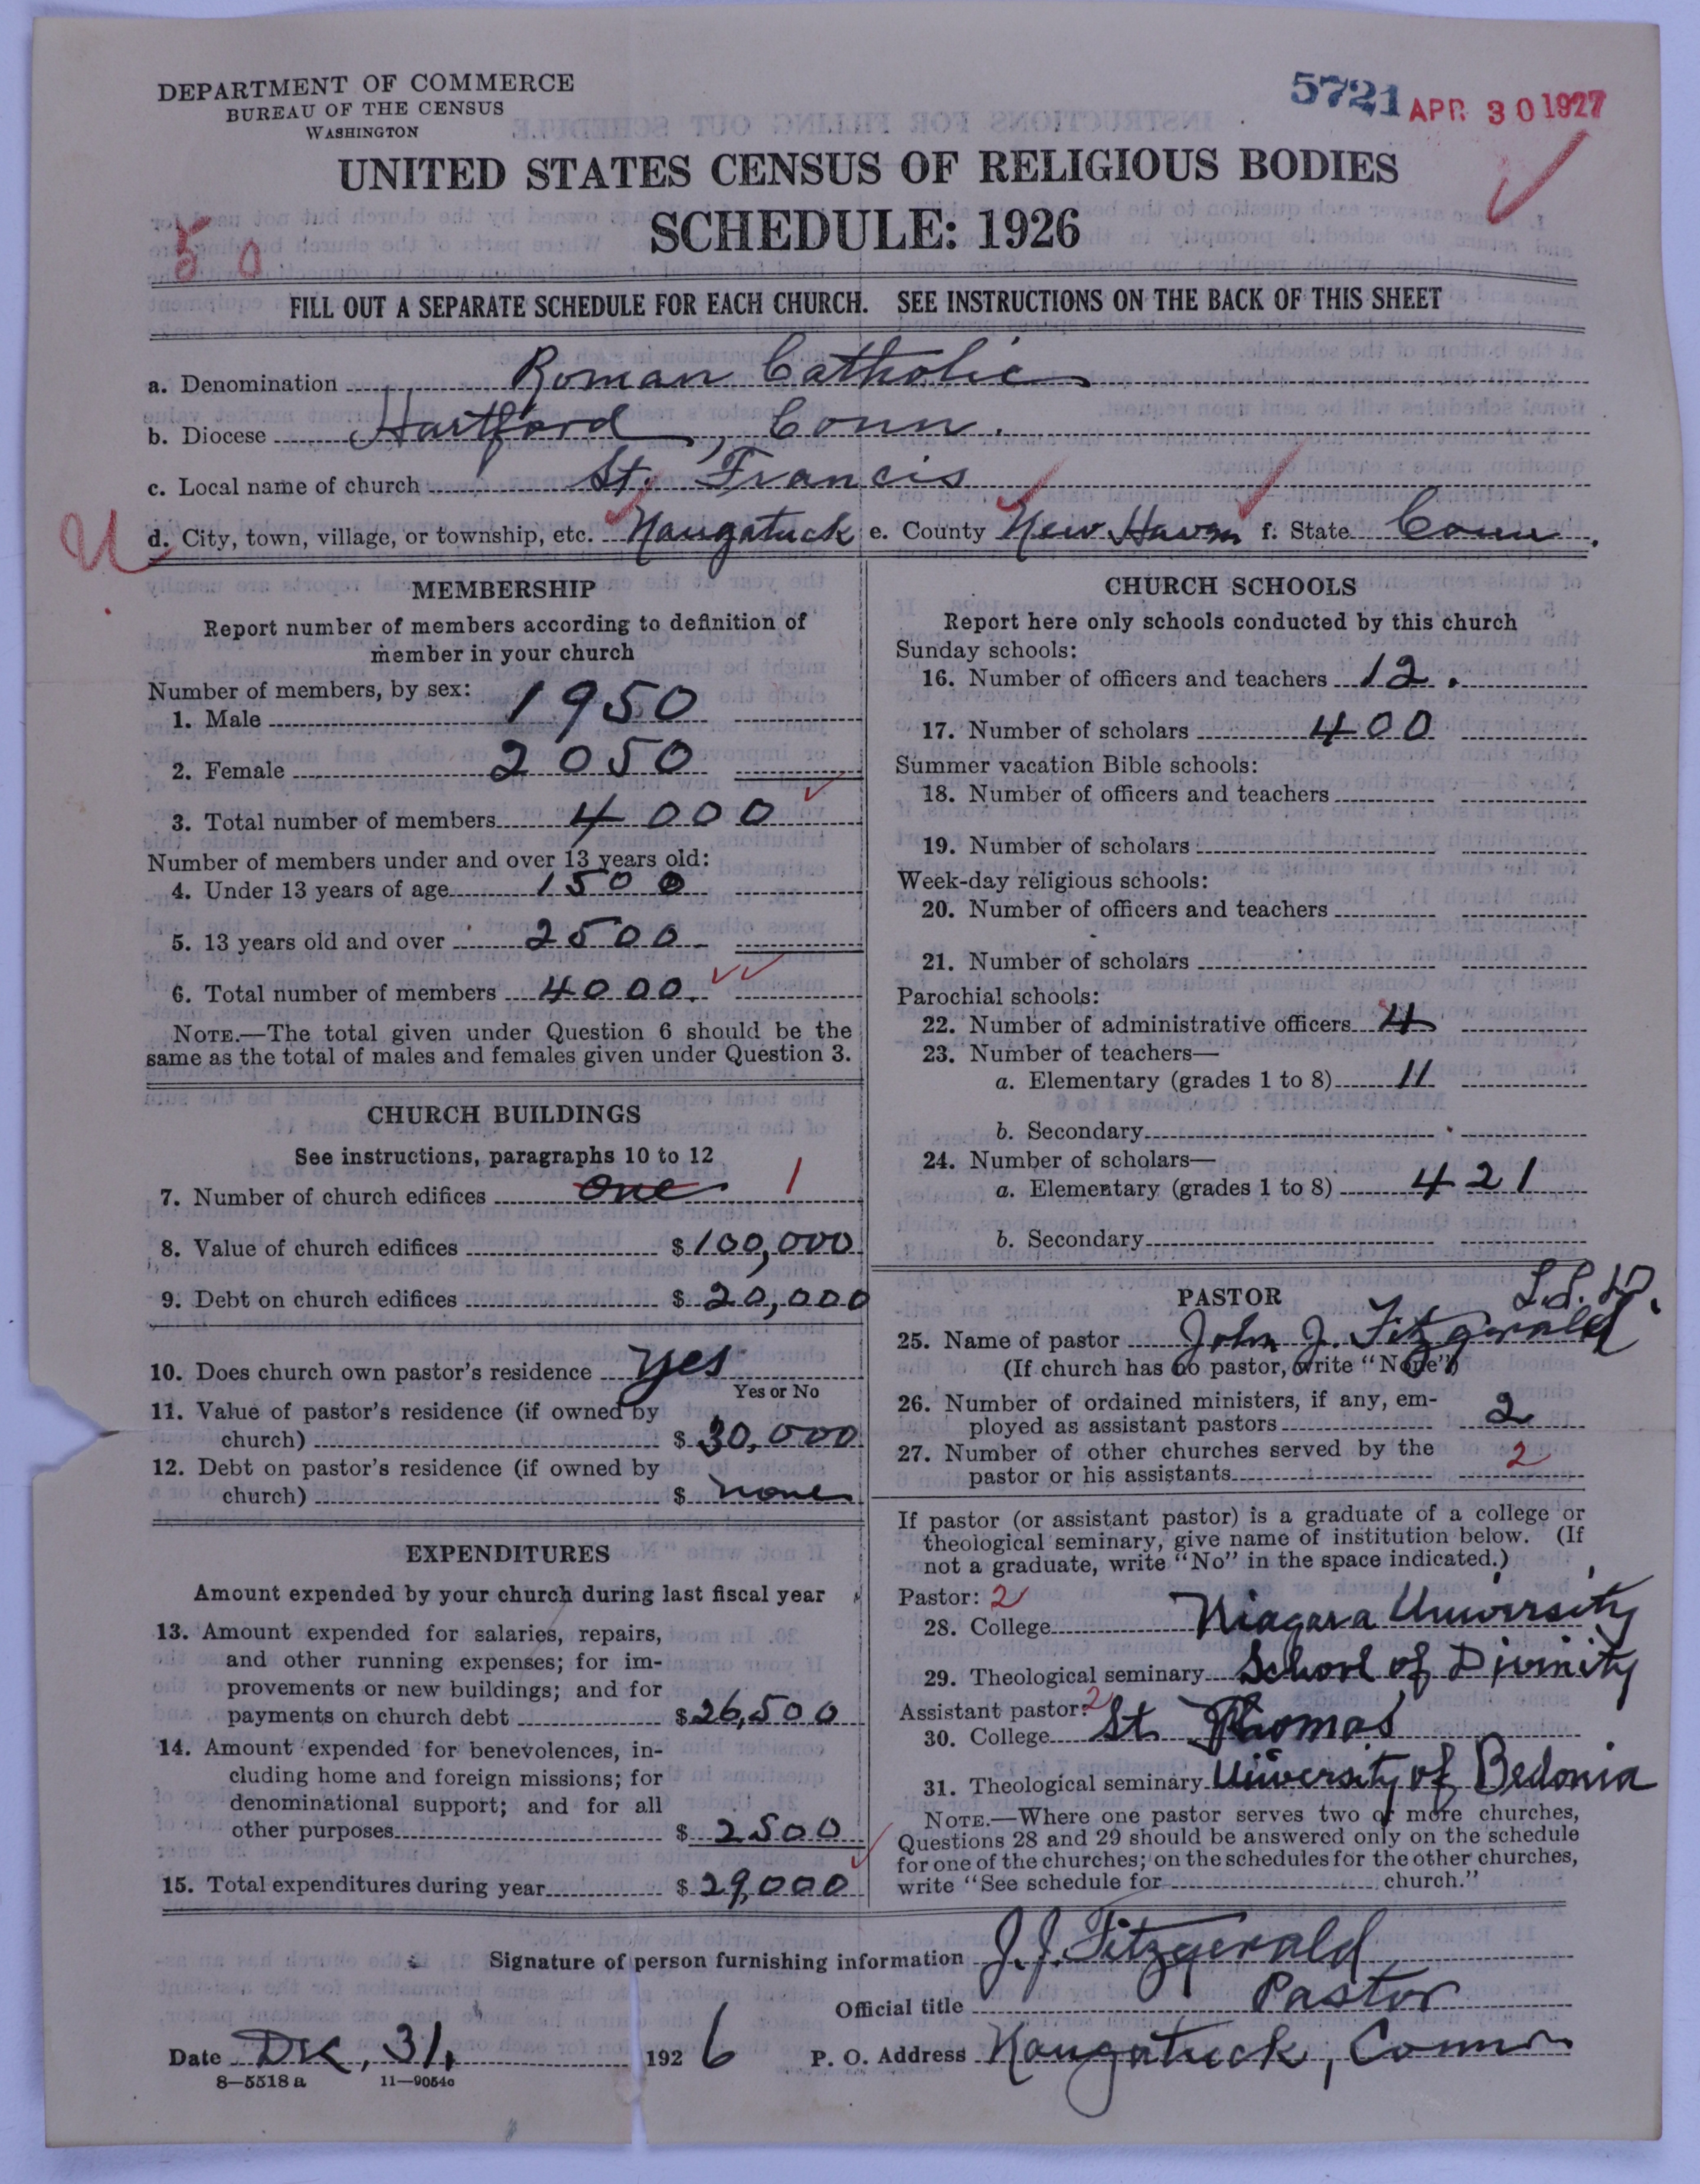 DEPARTMENT OF COMMERCE
BUREAU OF THE CENSUS
WASHINGTON
5721 APR 30 1927
UNITED STATES CENSUS OF RELIGIOUS BODIES
SCHEDULE: 1926
50
FILL OUT A SEPARATE SCHEDULE FOR EACH CHURCH. SEE INSTRUCTIONS ON THE BACK OF THIS SHEET
a. Denomination Roman Catholic
b. Diocese Hartford, Conn.
c. Local name of church St. Francis
U d. City, town, village, or township, etc. Naugatuck e. County New Haven f. State Conn.
MEMBERSHIP
Report number of members according to definition of
member in your church
Number of members, by sex:
1. Male 1950
2. Female 2050
3. Total number of members 4000
Number of members under and over 13 years old:
4. Under 13 years of age 1500
5. 13 years old and over 2500
6. Total number of members 4000.
NOTE.—The total given under Question 6 should be the
same as the total of males and females given under Question 3.
CHURCH BUILDINGS
See instructions, paragraphs 10 to 12
7. Number of church edifices one 1
8. Value of church edifices $100,000
9. Debt on church edifices $20,000
10. Does church own pastor's residence yes
Yes or No
11. Value of pastor's residence (if owned by
church) $30,000
12. Debt on pastor's residence (if owned by
church) $none
EXPENDITURES
Amount expended by your church during last fiscal year
13. Amount expended for salaries, repairs,
and other running expenses; for im-
provements or new buildings; and for
payments on church debt $26,500
14. Amount expended for benevolences, in-
cluding home and foreign missions; for
denominational support; and for all
other purposes $2500
15. Total expenditures during year $29,000
CHURCH SCHOOLS
Report here only schools conducted by this church
Sunday schools:
16. Number of officers and teachers 12.
17. Number of scholars 400
Summer vacation Bible schools:
18. Number of officers and teachers
19. Number of scholars
Week-day religious schools:
20. Number of officers and teachers
21. Number of scholars
Parochial schools:
22. Number of administrative officers 4
23. Number of teachers—
a. Elementary (grades 1 to 8) 11
b. Secondary
24. Number of scholars—
a. Elementary (grades 1 to 8) 421
b. Secondary
PASTOR
25. Name of pastor John J. Fitzgerald
(If church has no pastor, write "None")
26. Number of ordained ministers, if any, em-
ployed as assistant pastors 2
27. Number of other churches served by the
pastor or his assistants 2
If pastor (or assistant pastor) is a graduate of a college or
theological seminary, give name of institution below. (If
not a graduate, write "No" in the space indicated.)
Pastor: 2
28. College Niagara University
29. Theological seminary School of Divinity
Assistant pastor: 2
30. College St. Thomas
31. Theological seminary University of Bedonia
NOTE.—Where one pastor serves two or more churches,
Questions 28 and 29 should be answered only on the schedule
for one of the churches; on the schedules for the other churches,
write "See schedule for church."
Signature of person furnishing information J. J. Fitzgerald
Official title Pastor
Date Dec, 31, 1926 P. O. Address Naugatuck, Conn
8—5518 a 11—9054c